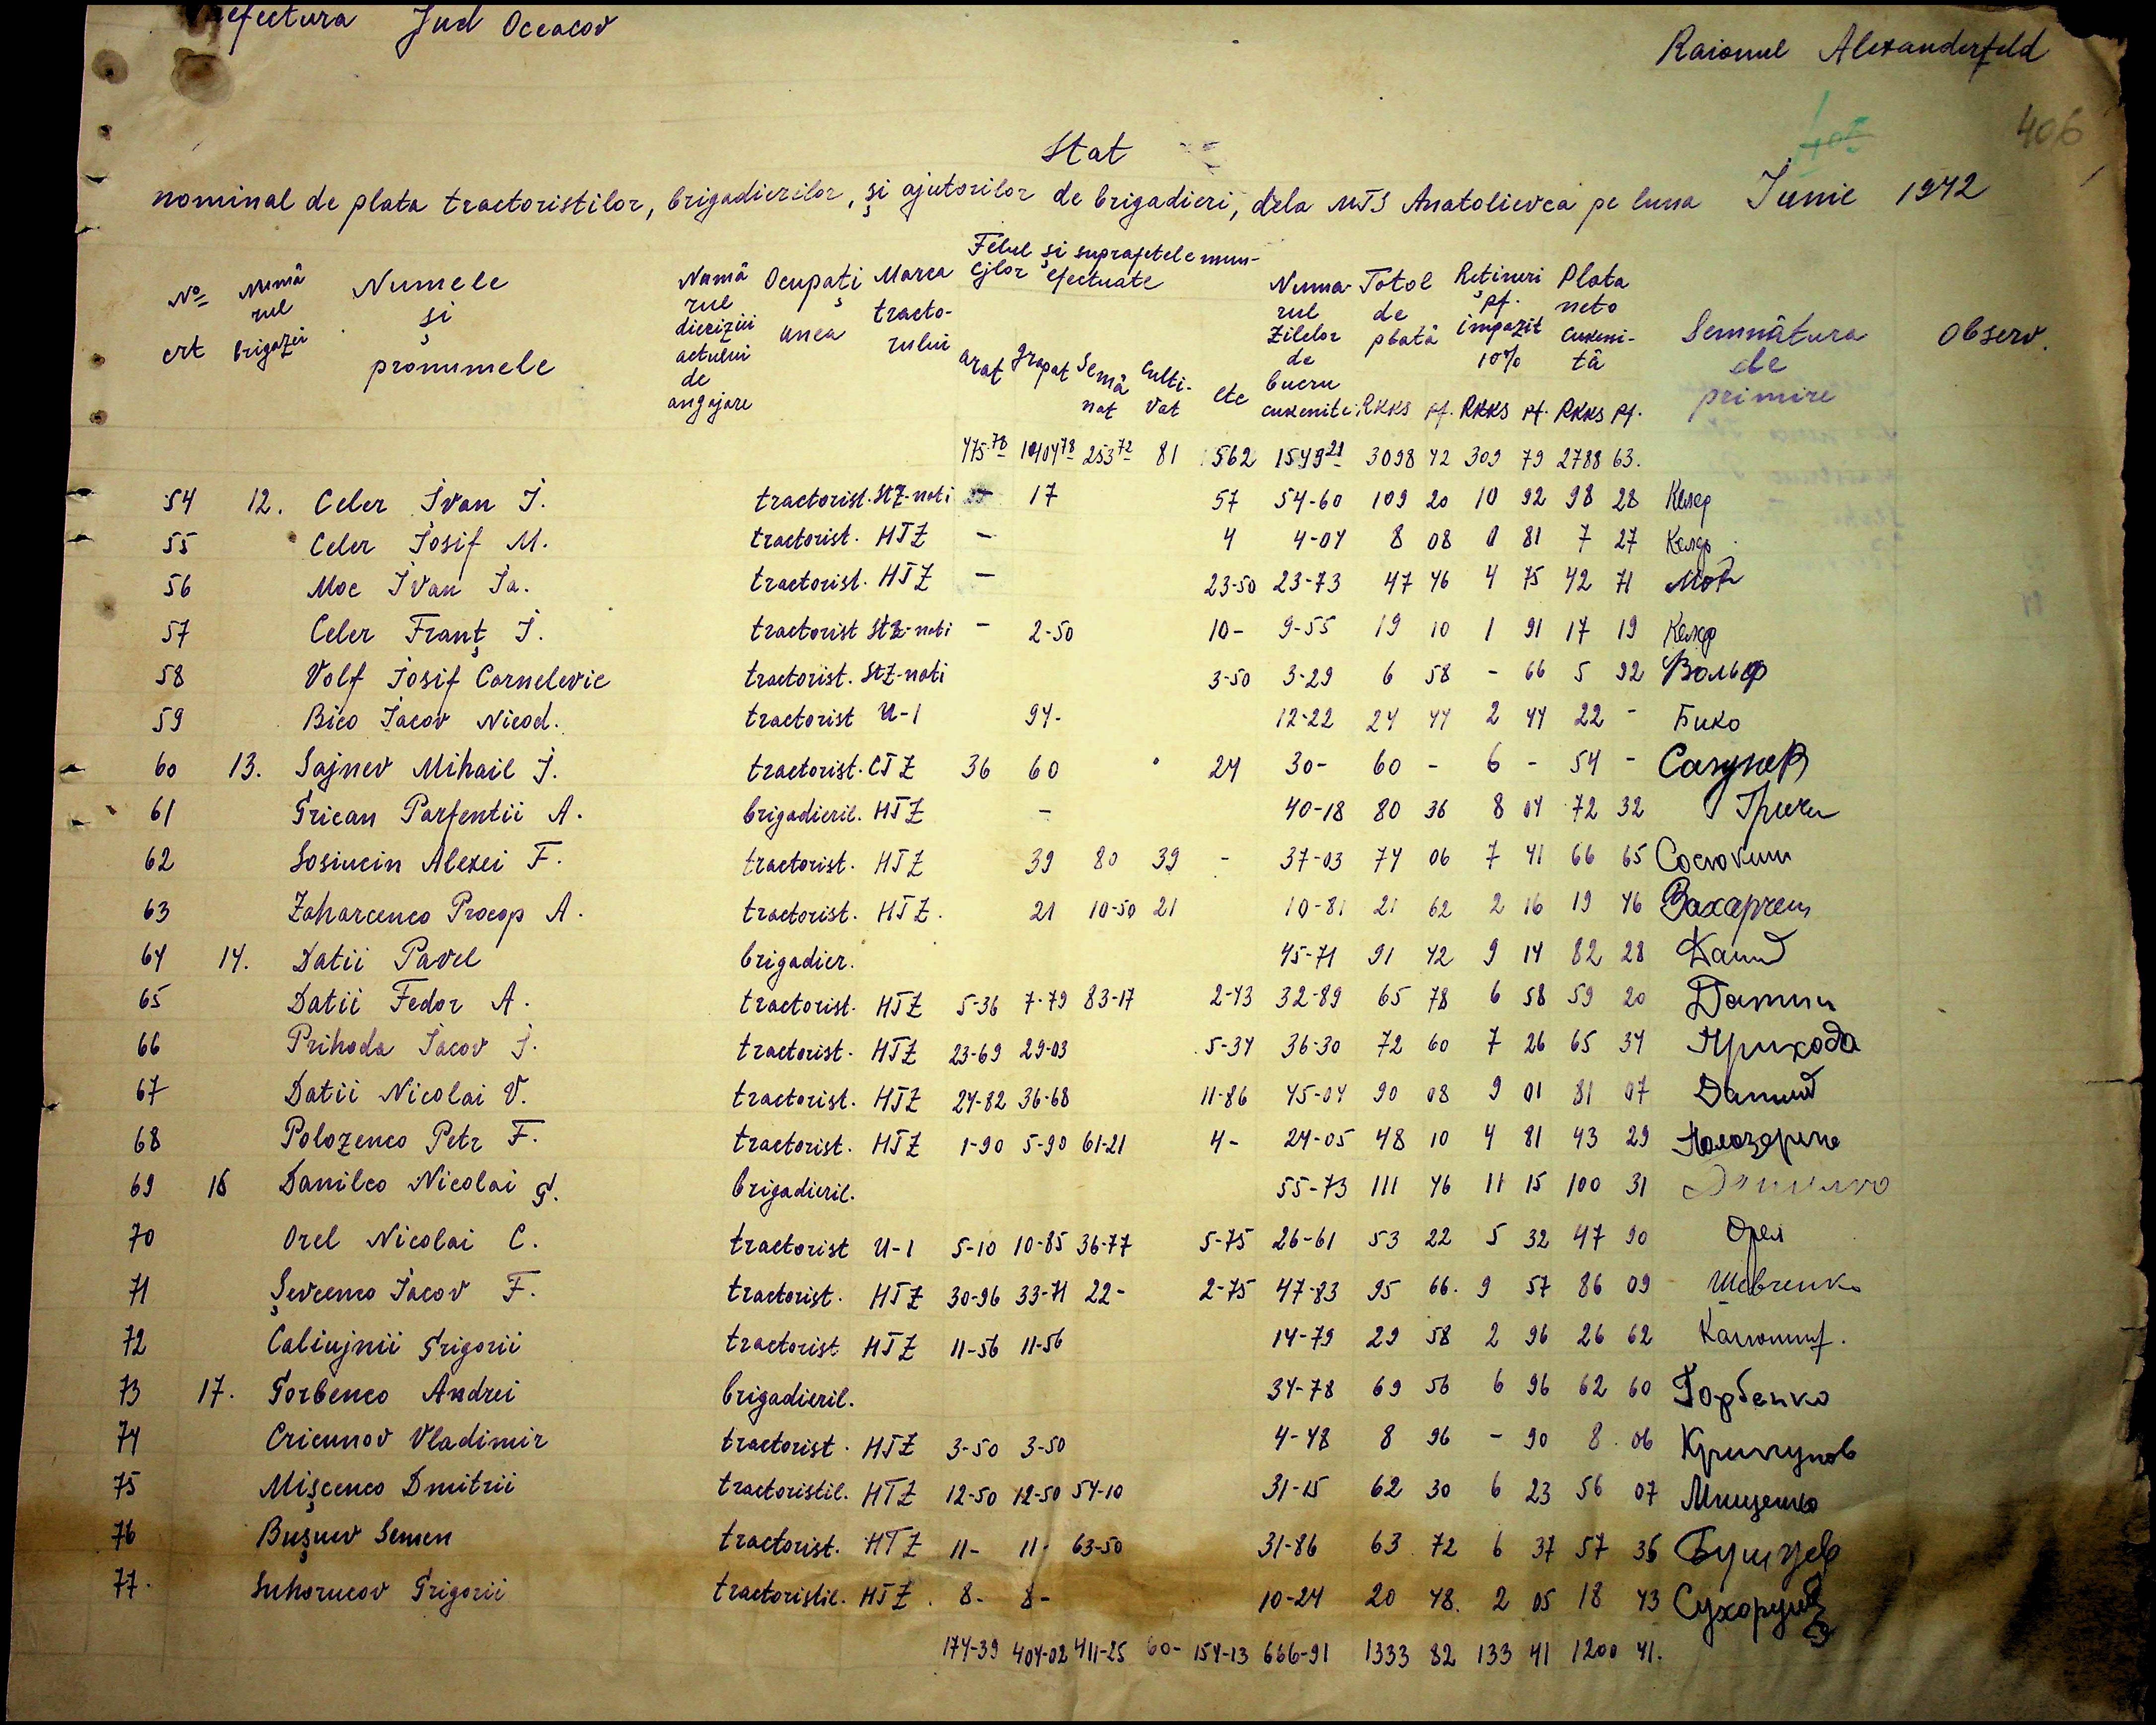 Prefectura Jud Oceacov
Raionul Alexanderfeld
406
Stat
nominal de plata tractoristilor, brigadierilor, și ajutorilor de brigadieri, dela MTS Anatolievca pe luna Iunie 1942
No crt Numărul brigazei Numele și pronumele Numărul actului de angajare Ocupați unea Marca tractorului Felul și suprafetele muncilor efectuate arat grapat Semănat Cultivat etc Numarul Zilelor de lucru cuvenite Total de plată RKKS pf. Rețineri pf. impozit 10% RKKS pf. Plata neto cuvenită RKKS pf. Semnătura de primire Observ.
475-78 10404 78 253 72 81 562 1549 21 3098 42 309 79 2788 63.
54 12. Celer Ivan I. tractorist. StZ-nati 17 57 54-60 109 20 10 92 98 28 Келер
55 Celer Iosif M. tractorist. HTZ - 4 4-04 8 08 0 81 7 27 Келер
56 Moc Ivan Ia. tractorist. HTZ - 23-50 23-73 47 46 4 75 42 71
57 Celer Franț I. tractorist StZ-nati - 2-50 10- 9-55 19 10 1 91 17 19 Келер
58 Volf Iosif Cornelevic tractorist. StZ-nati 3-50 3-29 6 58 - 66 5 92 Вольф
59 Bico Iacov Nicod. tractorist U-1 94- 12-22 24 44 2 44 22 - Бико
60 13. Sajnev Mihail I. tractorist. CTZ 36 60 24 30- 60 - 6 - 54 -
61 Grican Parfentii A. brigadieril. HTZ - 40-18 80 36 8 04 72 32
62 Sosiucin Alexei F. tractorist. HTZ 39 80 39 - 37-03 74 06 7 41 66 65 Сосюкин
63 Zaharcenco Procop A. tractorist. HTZ. 21 10-50 21 10-81 21 62 2 16 19 46
64 14. Datii Pavel brigadier. 45-71 91 42 9 14 82 28
65 Datii Fedor A. tractorist. HTZ 5-36 7-79 83-17 2-43 32-89 65 78 6 58 59 20
66 Prihoda Iacov I. tractorist. HTZ 23-69 29-03 5-34 36-30 72 60 7 26 65 34 Прихода
67 Datii Nicolai V. tractorist. HTZ 24-82 36-68 11-86 45-04 90 08 9 01 81 07
68 Polozenco Petr F. tractorist. HTZ 1-90 5-90 61-21 4- 24-05 48 10 4 81 43 29
69 16 Danilco Nicolai G. brigadieril. 55-73 111 46 11 15 100 31 Данилко
70 Orel Nicolai C. tractorist U-1 5-10 10-85 36-77 5-75 26-61 53 22 5 32 47 90 Орел
71 Șevcenco Iacov F. tractorist. HTZ 30-96 33-71 22- 2-75 47-83 95 66. 9 57 86 09 Шевченко
72 Caliujnii Grigorii tractorist HTZ 11-56 11-56 14-79 29 58 2 96 26 62
73 17. Gorbenco Andrei brigadieril. 34-78 69 56 6 96 62 60 Горбенко
74 Cricunov Vladimir tractorist. HTZ 3-50 3-50 4-48 8 96 - 90 8. 06 Крикунов
75 Mișcenco Dmitrii tractoristil. HTZ 12-50 12-50 54-10 31-15 62 30 6 23 56 07 Мищенко
76 Bușuev Semen tractorist. HTZ 11- 11- 63-50 31-86 63. 72 6 37 57 35 Бушуев
77. Suhorucov Grigorii tractoristil. HTZ. 8- 8- 10-24 20 48. 2 05 18 43 Сухоруков
174-39 404-02 411-25 60- 154-13 666-91 1333 82 133 41 1200 41.